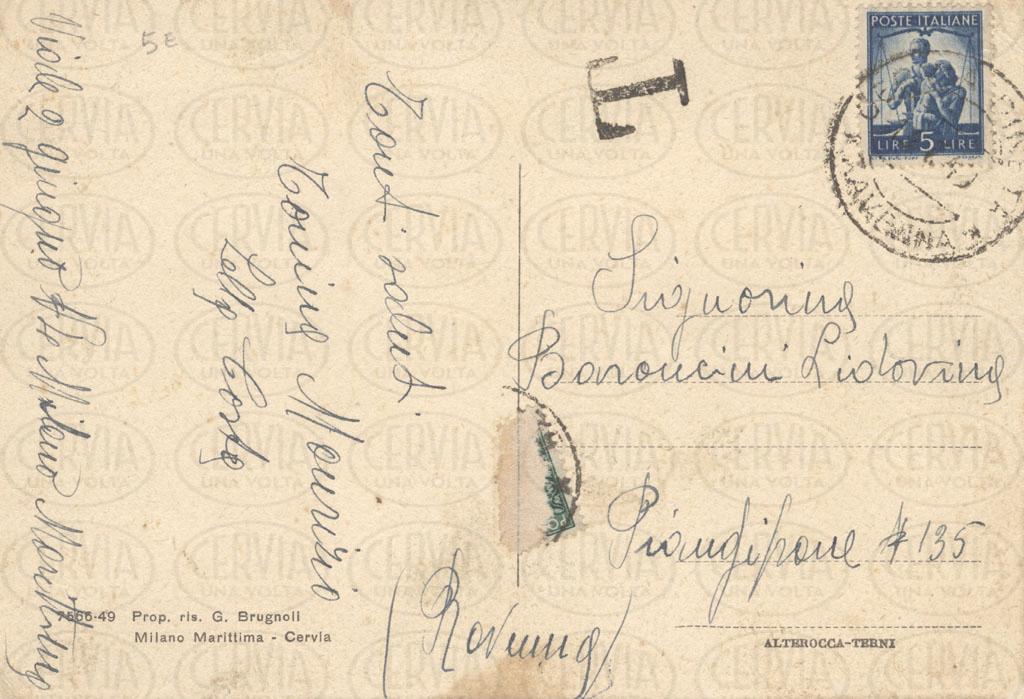 5 E
Viale 2 giugno No Milano Marittima
Tanti saluti
Tonina Maurizio
Lella Carla
7566-49 Prop. ris. G. Brugnoli
Milano Marittima - Cervia
T
POSTE ITALIANE
LIRE 5 LIRE
RAVENNA
Signorina
Baroncini Lidovina
Piangipane # 135
(Ravenna)
ALTEROCCA-TERNI
CERVIA
UNA VOLTA